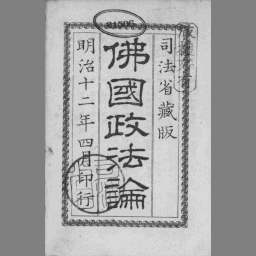 司法省藏版
佛國政法論
明治十二年四月印行